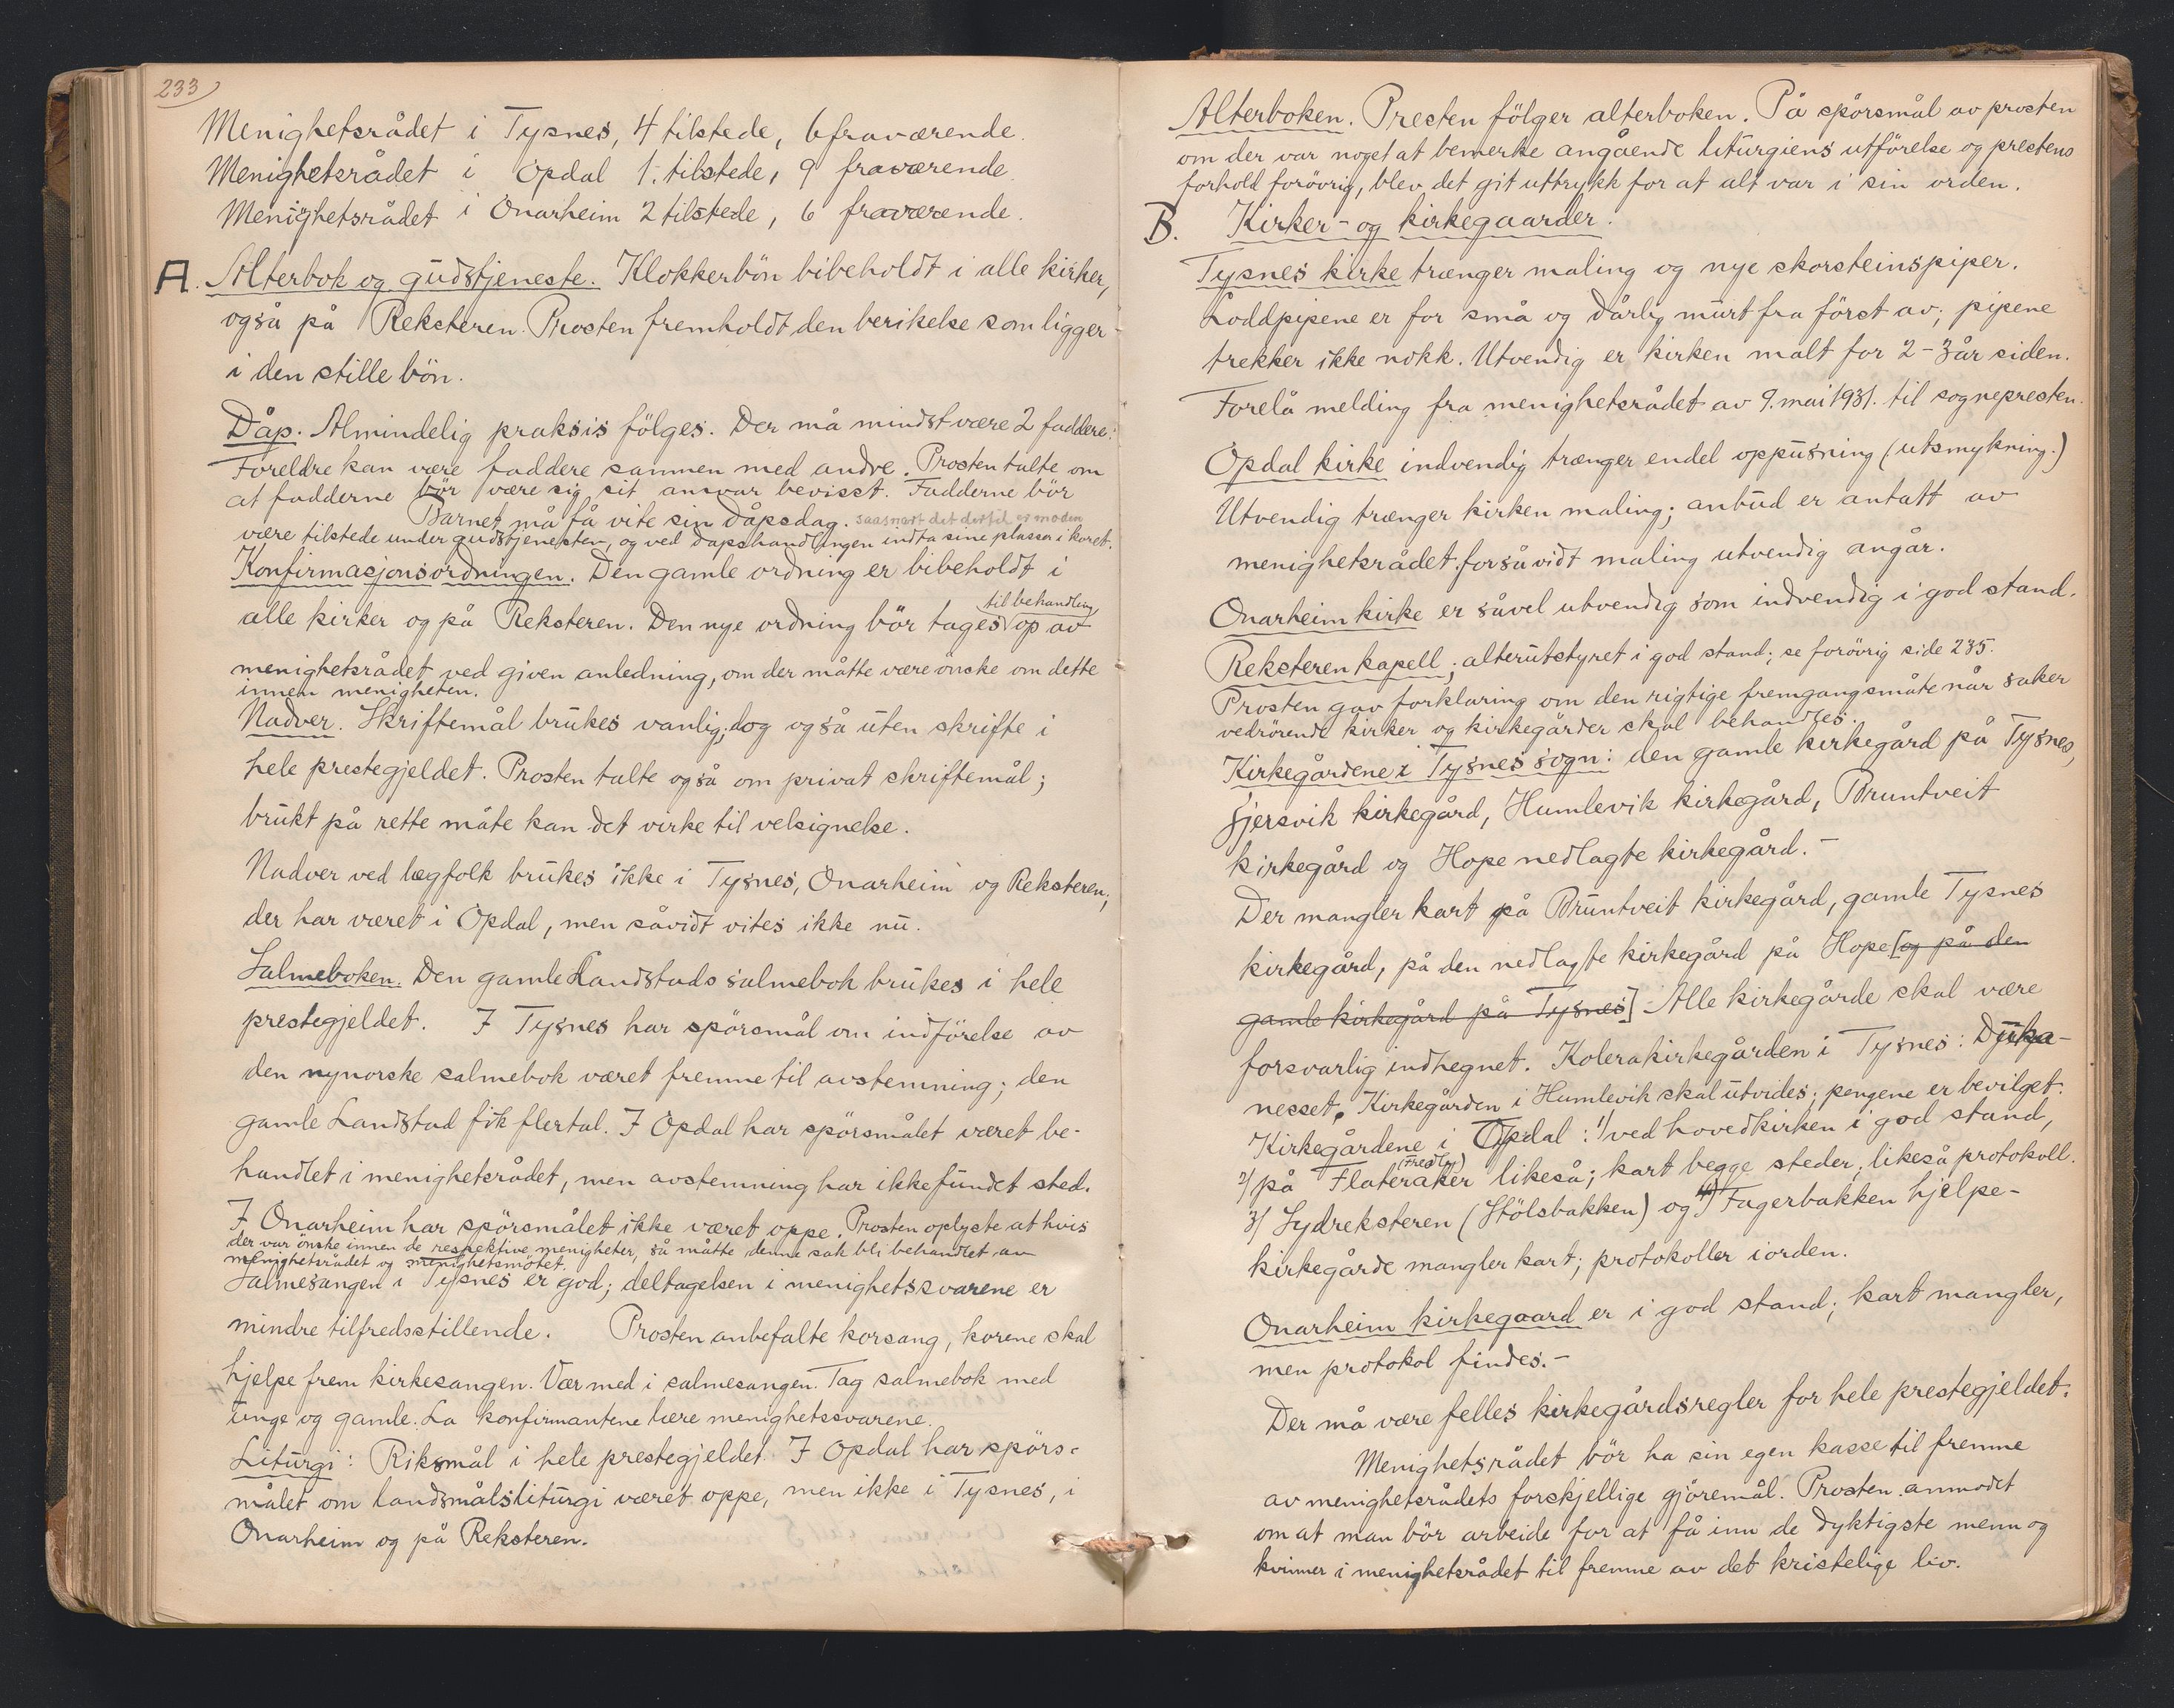 233
Menighetsrådet i Tysnes, 4 tilstede, 6 fraværende.
Menighetsrådet i Opdal 1. tilstede, 9 fraværende.
Menighetsrådet i Onarheim 2 tilstede, 6 fraværende.
A. Alterbok og gudstjeneste. Klokkerbön bibeholdt i alle kirker,
også på Reksteren. Prosten fremholdt den berikelse som ligger
i den stille bön.
Dåp. Almindelig praksis fölges. Der må mindst være 2 faddere.
Foreldre kan være faddere sammen med andre. Prosten talte om
at fadderne bör være sig sit ansvar bevisst. Fadderne bör
Barnet må få vite sin dåpsdag. saasnart det dertil er moden
være tilstede under gudstjenesten, og ved dåpshandlingen indta sine plasser i koret.
Konfirmasjonsordningen. Den gamle ordning er bibeholdt i
til behandling
alle kirker og på Reksteren. Den nye ordning bör tages op av
menighetsrådet ved given anledning, om der måtte være önske om dette
innen menigheten.
Nadver. Skriftemål brukes vanlig; dog også uten skrifte i
hele prestegjeldet. Prosten talte også om privat skriftemål;
brukt på rette måte kan det virke til velsignelse.
Nadver ved lægfolk brukes ikke i Tysnes, Onarheim og Reksteren;
der har været i Opdal, men såvidt vites ikke nu.
Salmeboken. Den gamle Landstads salmebok brukes i hele
prestegjeldet. I Tysnes har spörsmål om indförelse av
den nynorske salmebok været fremme til avstemning; den
gamle Landstad fik flertal. I Opdal har spörsmålet været be-
handlet i menighetsrådet, men avstemning har ikke fundet sted.
I Onarheim har spörsmålet ikke været oppe. Prosten oplyste at hvis
der var önske innen de respektive menigheter, så måtte denne sak bli behandlet av
menighetsrådet og menighetsmötet.
Salmesangen i Tysnes er god; deltagelsen i menighetssvarene er
mindre tilfredsstillende. Prosten anbefalte korsang, korene skal
hjelpe frem kirkesangen. Vær med i salmesangen. Tag salmebok med
unge og gamle. La konfirmantene lære menighetssvarene.
Liturgi: Riksmål i hele prestegjeldet. I Opdal har spörs-
målet om landsmålsliturgi været oppe, men ikke i Tysnes, i
Onarheim og på Reksteren.
Alterboken. Presten fölger alterboken. På spörsmål av prosten
om der var noget at bemerke angående liturgiens utförelse og prestens
forhold forövrig, blev det git uttrykk for at alt var i sin orden.
B. Kirker- og kirkegaarder.
Tysnes kirke trænger maling og nye skorsteinspiper.
Loddpipene er for små og dårlig murt fra först av; pipene
trekker ikke nokk. Utvendig er kirken malt for 2-3 år siden.
Forelå melding fra menighetsrådet av 9. mai 1931. til sognepresten.
Opdal kirke indvendig trænger endel oppusning (utsmykning.)
Utvendig trænger kirken maling; anbud er antatt av
menighetsrådet, forsåvidt maling utvendig angår.
Onarheim kirke er såvel utvendig som indvendig i god stand.
Reksteren kapell; alterutstyret i god stand; se forövrig side 235.
Prosten gav forklaring om den rigtige fremgangsmåte når saker
vedrörende kirker og kirkegårder skal behandles.
Kirkegårdene i Tysnes sogn: den gamle kirkegård på Tysnes,
Gjersvik kirkegård, Humlevik kirkegård, Bruntveit
kirkegård og Hope nedlagte kirkegård.-
Der mangler kart på Bruntveit kirkegård, gamle Tysnes
kirkegård, på den nedlagte kirkegård på Hope [og på den
gamle kirkegård på Tysnes] Alle kirkegårde skal være
forsvarlig indhegnet. Kolerakirkegården i Tysnes: Djupa-
nesset. Kirkegården i Humlevik skal utvides; pengene er bevilget.
Kirkegårdene i Opdal: 1/ ved hovedkirken i god stand,
2/ på Flateråker likeså; kart begge steder, likeså protokoll.
3/ Sydreksteren (Stölsbakken) og 4) Fagerbakken hjelpe-
kirkegårde mangler kart; protokoller iorden.
Onarheim kirkegaard er i god stand; kart mangler,
men protokol findes.-
Der må være felles kirkegårdsregler for hele prestegjeldet.
Menighetsrådet bör ha sin egen kasse til fremme
av menighetsrådets forskjellige gjöremål. Prosten anmodet
om at man bör arbeide for at få inn de dyktigste menn og
kvinner i menighetsrådet til fremme av det kristelige liv.